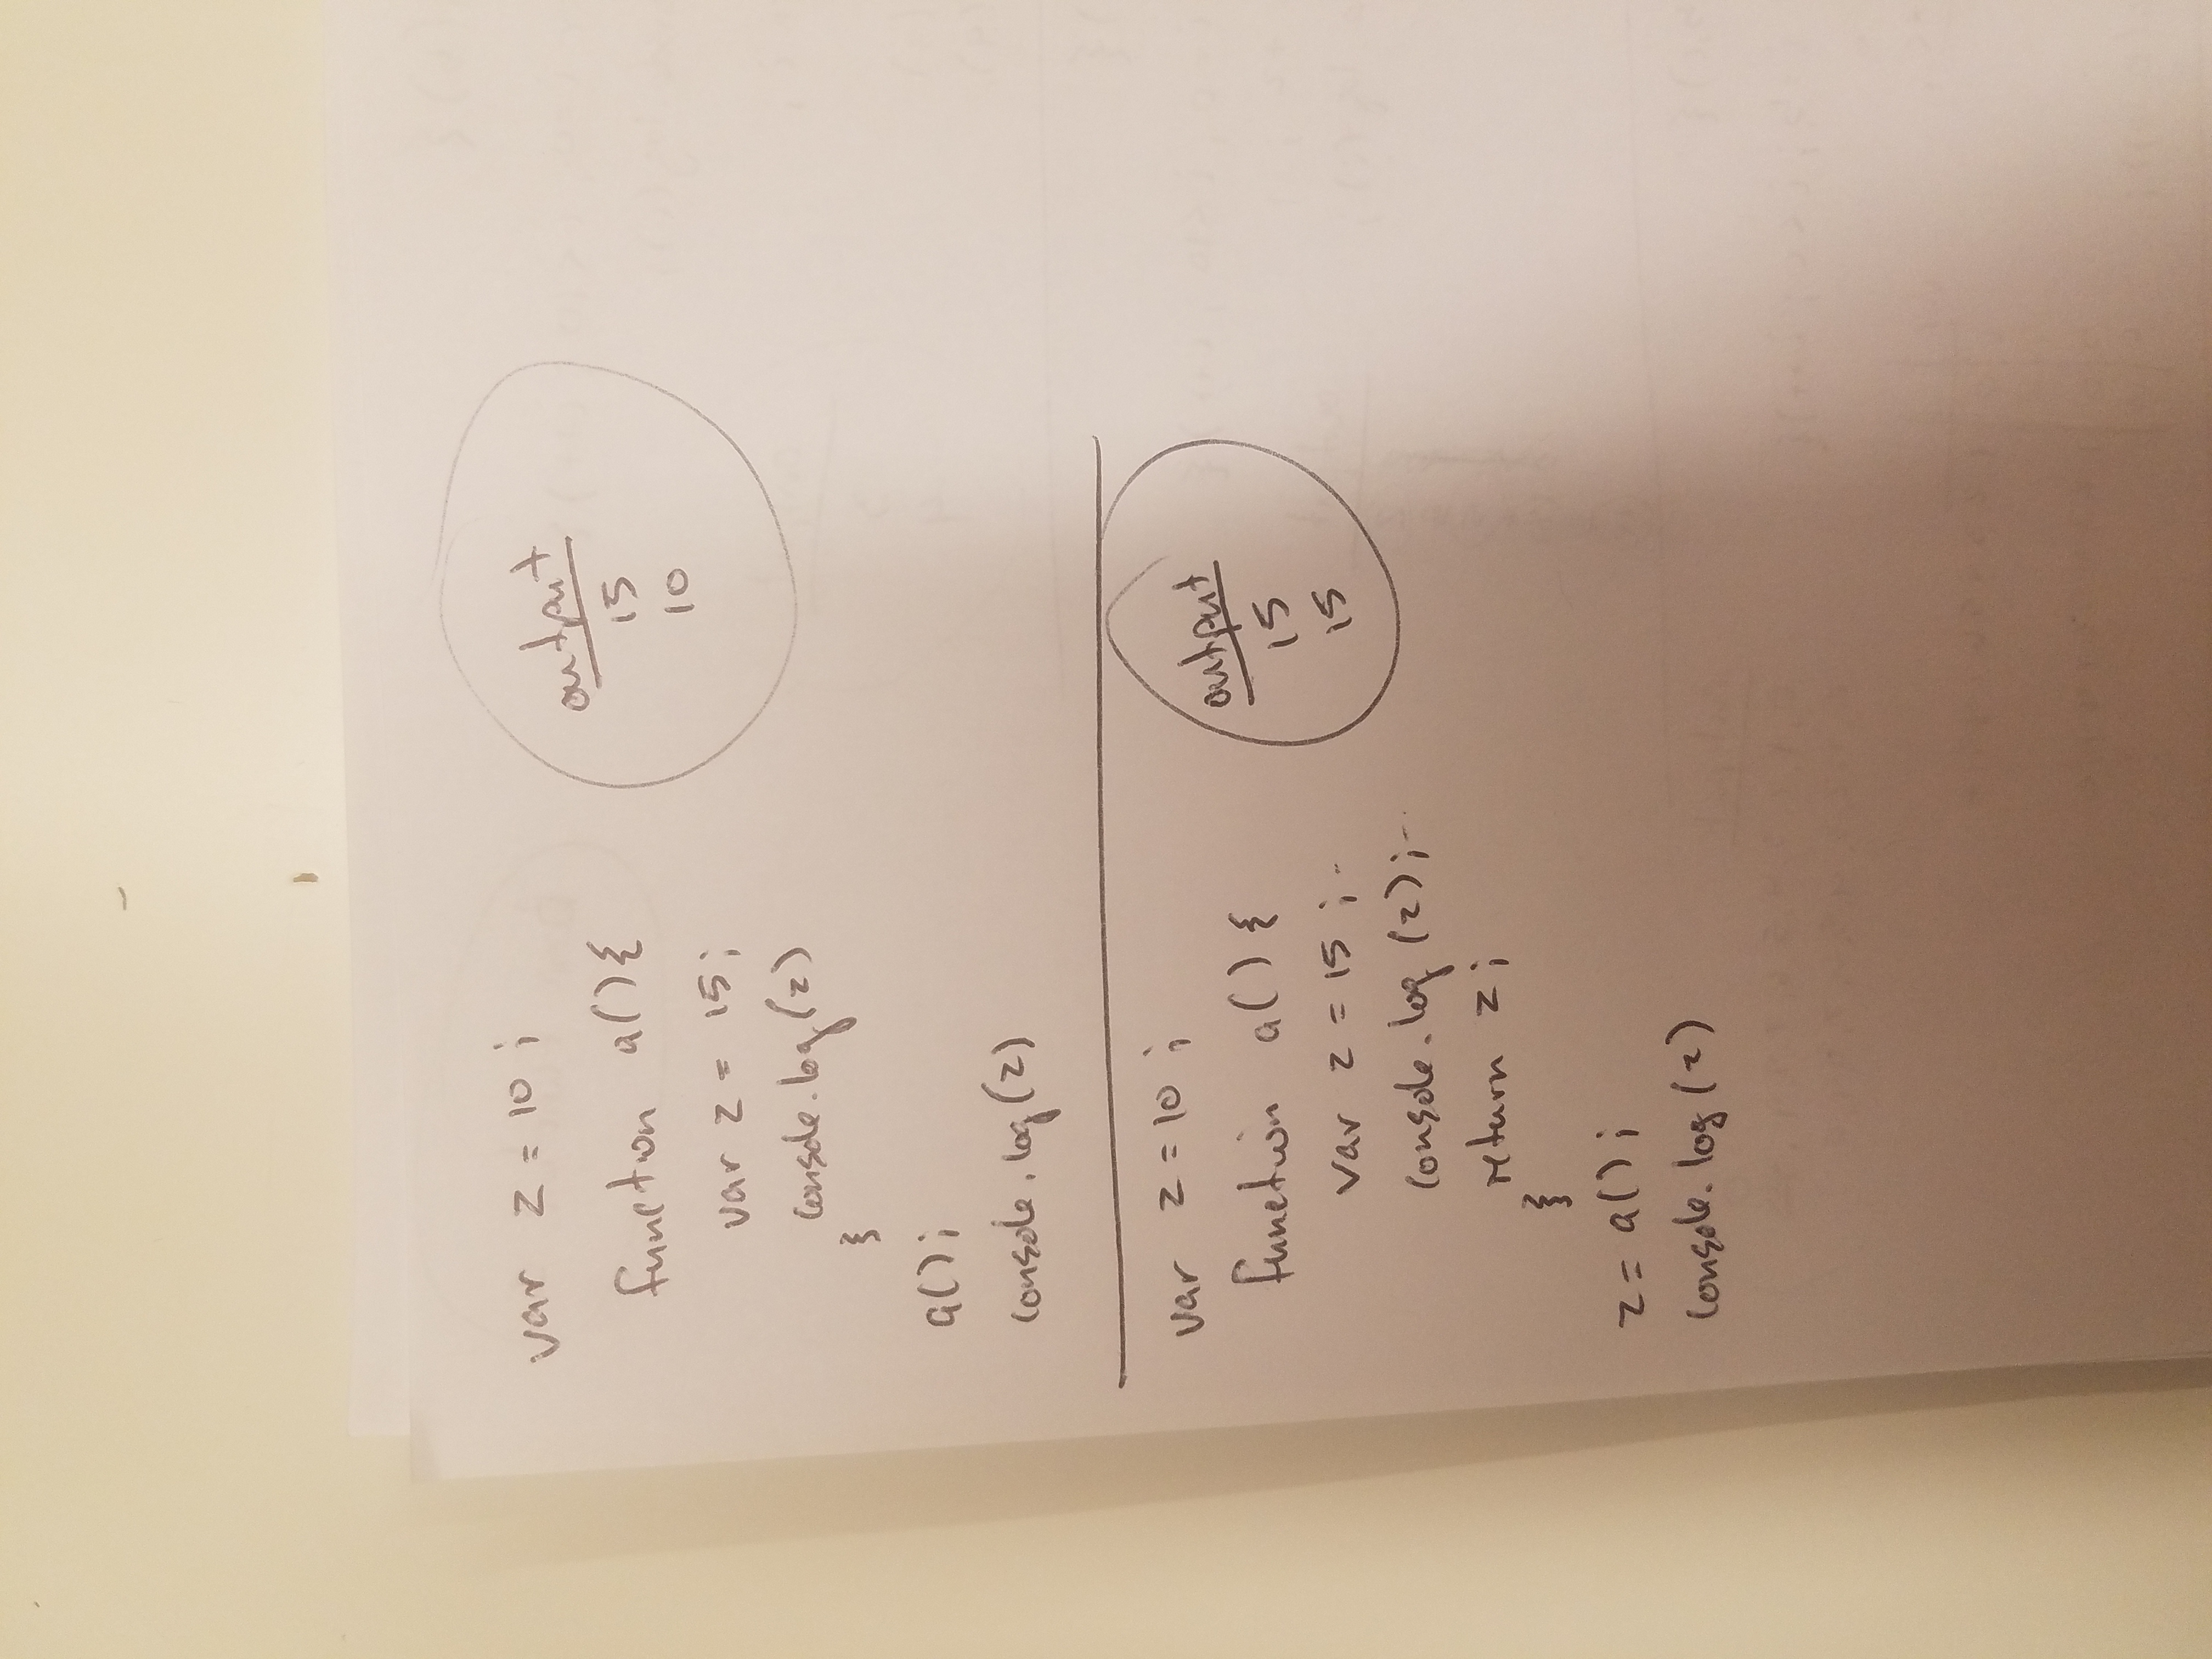 var z = 10;
function a(){
var z = 15;
console.log(z)
}
a();
console.log(z)
output
15
10
var z = 10;
function a(){
var z = 15;
console.log(z);
return z;
}
z = a();
console.log(z)
output
15
15